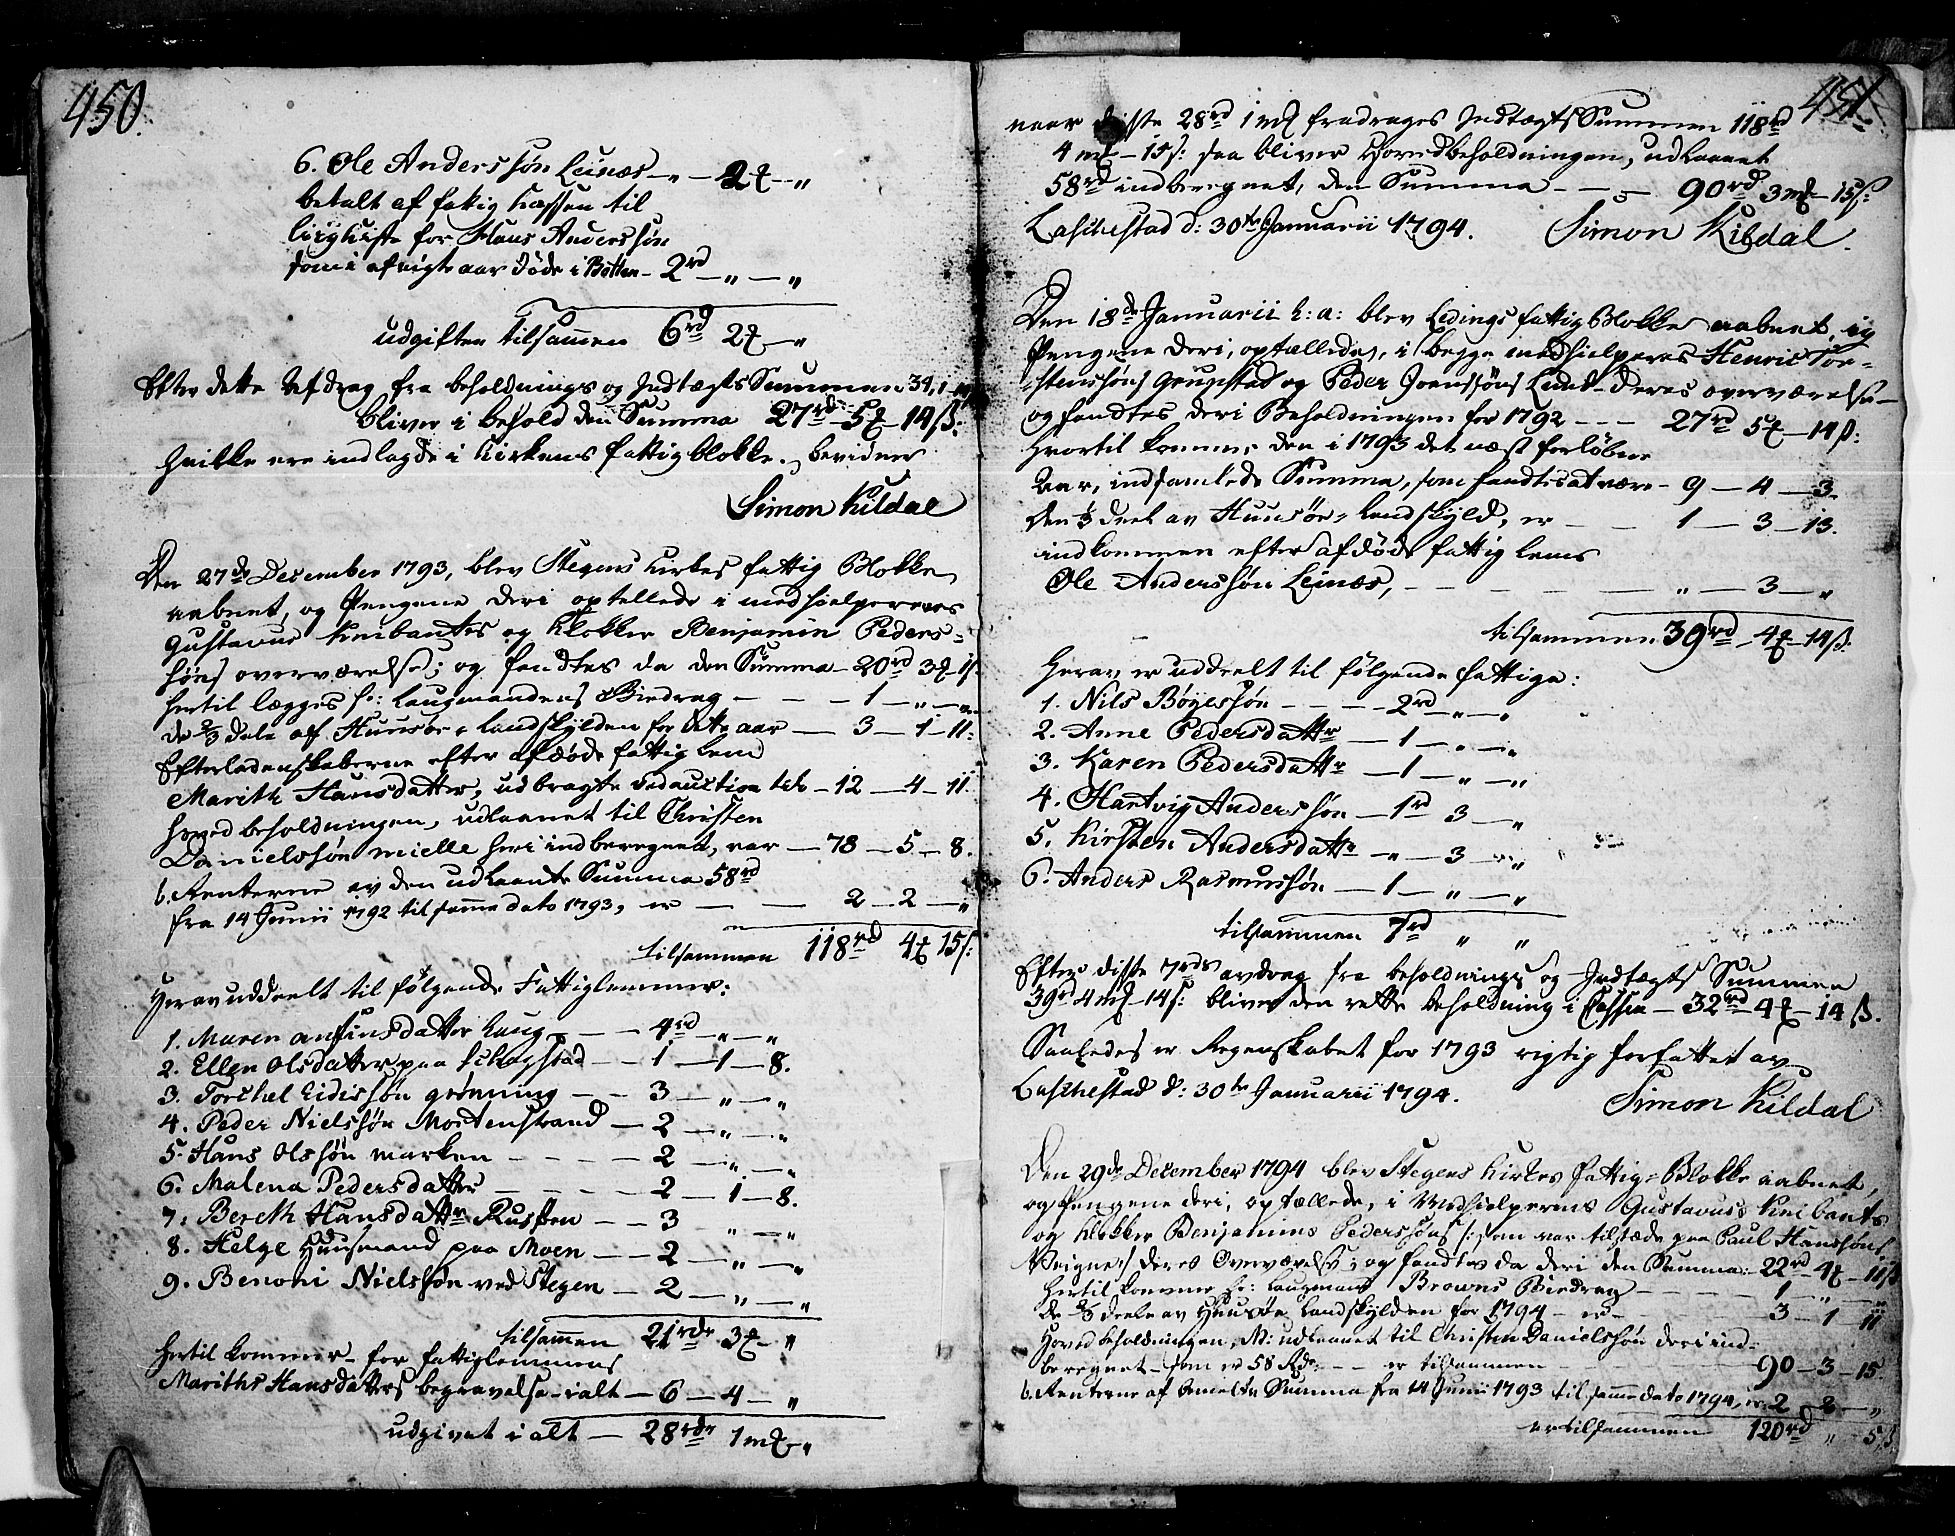 450.
6. Ole Anderssøn Leines — " — 2 ꝶ — "
betalt af fattig Cassen til
liigkiste for Hans Anderssøn
som i afvigte aar døde i Botten — 2 rd — " — "
udgiften tilsamen 6 rd 2 ꝶ — "
Efter dette Afdrag fra beholdnings og Indtægts Summen 34, 1
bliver i behold den Summa 27 rd — 5 ꝶ — 14 ß:
hvilke ere indlagde i Kirkens fattigblokke. bevidner
Simon Kildal
Den 27de December 1793, blev Stegens Kirkes fattig Blokke
aabnet, og Pengene deri optellede i medhielperens
Gustavus Kreibantes og Klokker Benjamin Peders-
søns overværelse; og fandtes da den Summa — 20 rd 3 ꝶ 1 ß
hertil lægges hr: Laugmandens Biedrag — — 1 — " — "
de 2/3 dele af Hunsøe-landskylden for dette aar — 3 — 1 — 11:
Efterladenskaberne efter afdøde fattig Lem
Marith Hansdatter, udbragte ved auction til — 12 — 4 — 11.
hovedbeholdningen, udlaanet til Christen
Danielssøn mielle heri indberegnet, var — 78 — 5 — 8.
b. Renterne av den udlaante Summa 58 rd
fra 14 Junii 1792 til samme dato 1793, er — — 2 — 2 — "
tilsammen 118 rd 4 ꝶ 15 ß:
Herav uddeelt til følgende Fattiglemmer:
1. Maren Anfinsdatter Laug — — 4 rd — " — "
2. Ellen Olsdatter paa Schagstad — — 1 — 1 — 8.
3. Torchel Eidissøn grønning — — 3 — " — "
4. Peder Nielssøn Mortenstrand — 2 — " — "
5. Hans Olssøn marken — — — — 2 — " — "
6. Malena Pedersdatter — — — — 2 — 1 — 8.
7. Bereth Hansdattr Russten — — 3 " — "
8. Helge Huusmand paa Moen — — 2 — " — "
9. Benoni Nielssøn ved Stegen — 2 — " — "
tilsamen 21 rdr 3 ꝶ — "
hertil kommer for fattiglemmens
Mariths Hansdatters begravelse ialt — 6 — 4 — "
udgivet i alt — 28 rdr 1 mꝶ "
451.
naar disse 28 rd 1 mꝶ fradrages Indtægts Summen 118 rd
4 mꝶ — 15 ß: saa bliver Hovedbeholdningen, udlaanet
58 rd indberegnet, den Summa — — — 90 rd 3 mꝶ — 15 ß:
Laschestad d: 30te Januarii 1794. Simon Kildal.
Den 18de Januarii h: a: blev Ledings fattig Blokke aabnet, og
Pengene deri, optællede, i begge medhielperes Henric Tor-
stenssøns Grugstad og Peder Joenssøns Lund deres overværelse
og fandtes deri Beholdningen for 1792 — — — 27 rd 5 ꝶ — 14 ß:
hvortil kommer den i 1793 det næst forløbne
Aar, indsamlede Summa, som fandtes at være — 9 — 4 — 3.
den 1/3 deel av Hunsøe-landskyld, er — — 1 — 3 — 13.
indkommen efter afdøde fattig lems
Ole Anderssøn Leines, — — — — — " — 3 — "
tilsammen 39 rd — 4 ꝶ — 14 ß:
Herav er uddeelt til følgende fattige:
1. Nils Bøyessøn — — — — 2 rd — " — "
2. Anne Pedersdattr — 1 — " — "
3. Karen Pedersdattr — 1 — " — "
4. Hartvig Anderssøn — 1 rd 3 — "
5. Kirsten Andersdattr — " — 3 — "
6. Anders Rasmussøn — 1 — " — "
tilsammen 7 rd " "
Efter disse 7 rdrs avdrag fra beholdnings og Indtægts Summen
39 rd 4 mꝶ 14 ß: bliver den rette beholdning i Cassen — 32 rd 4 ꝶ — 14 ß.
Saaledes er Regenskabet for 1793 rigtig forfattet av
Laschestad d: 30te Januarii 1794.
Simon Kildal
Den 29de December 1794 blev Stegens Kirkes fattig-Blokke aabnet,
og Pengene deri, optællede, i Medhielperens Gustavus Kreibants
og Klokker Benjamins Pederssøns /: som var tilstæde paa Paul Hanssøns
Veignes deres Overværelse; og fandtes da deri den Summa: 22 rd 4 ꝶ — 11 ß
hertil kommer hr: Laugmand Browns Biedrag — — — — 1 — " — "
de 2/3 deele av Hunsøe landskylden for 1794 — er — 3 — 1 — 11
Hovedbeholdningen, udlaanet til Christen Danielssøn deri ind-
beregnet — som er 58 Rdr: — — er tilsammen 90 — 3 — 15.
b. Renterne af bemelte Summa fra 14 Junii 1793 til samme dato 1794, er 2 — 2 — "
er tilsammen 120 rd " 5 ß